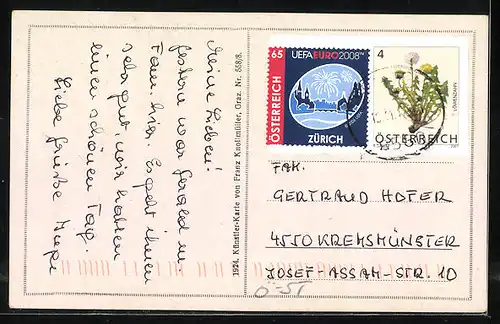 Meine Lieben!
gestern war Gerald m.
Fam. hier. Es geht ihnen
sehr gut, wir hatten
einen schönen Tag.
Liebe Grüße
1924. Künstler-Karte von Franz Knopfmüller, Graz. Nr. 558/8.
65
UEFA EURO2008™
ÖSTERREICH
ZÜRICH
4
LÖWENZAHN
ÖSTERREICH
2007
FAM.
GERTRAUD HOFER
4550 KREMSMÜNSTER
JOSEF-ASSAM-STR. 10
Ö-ST